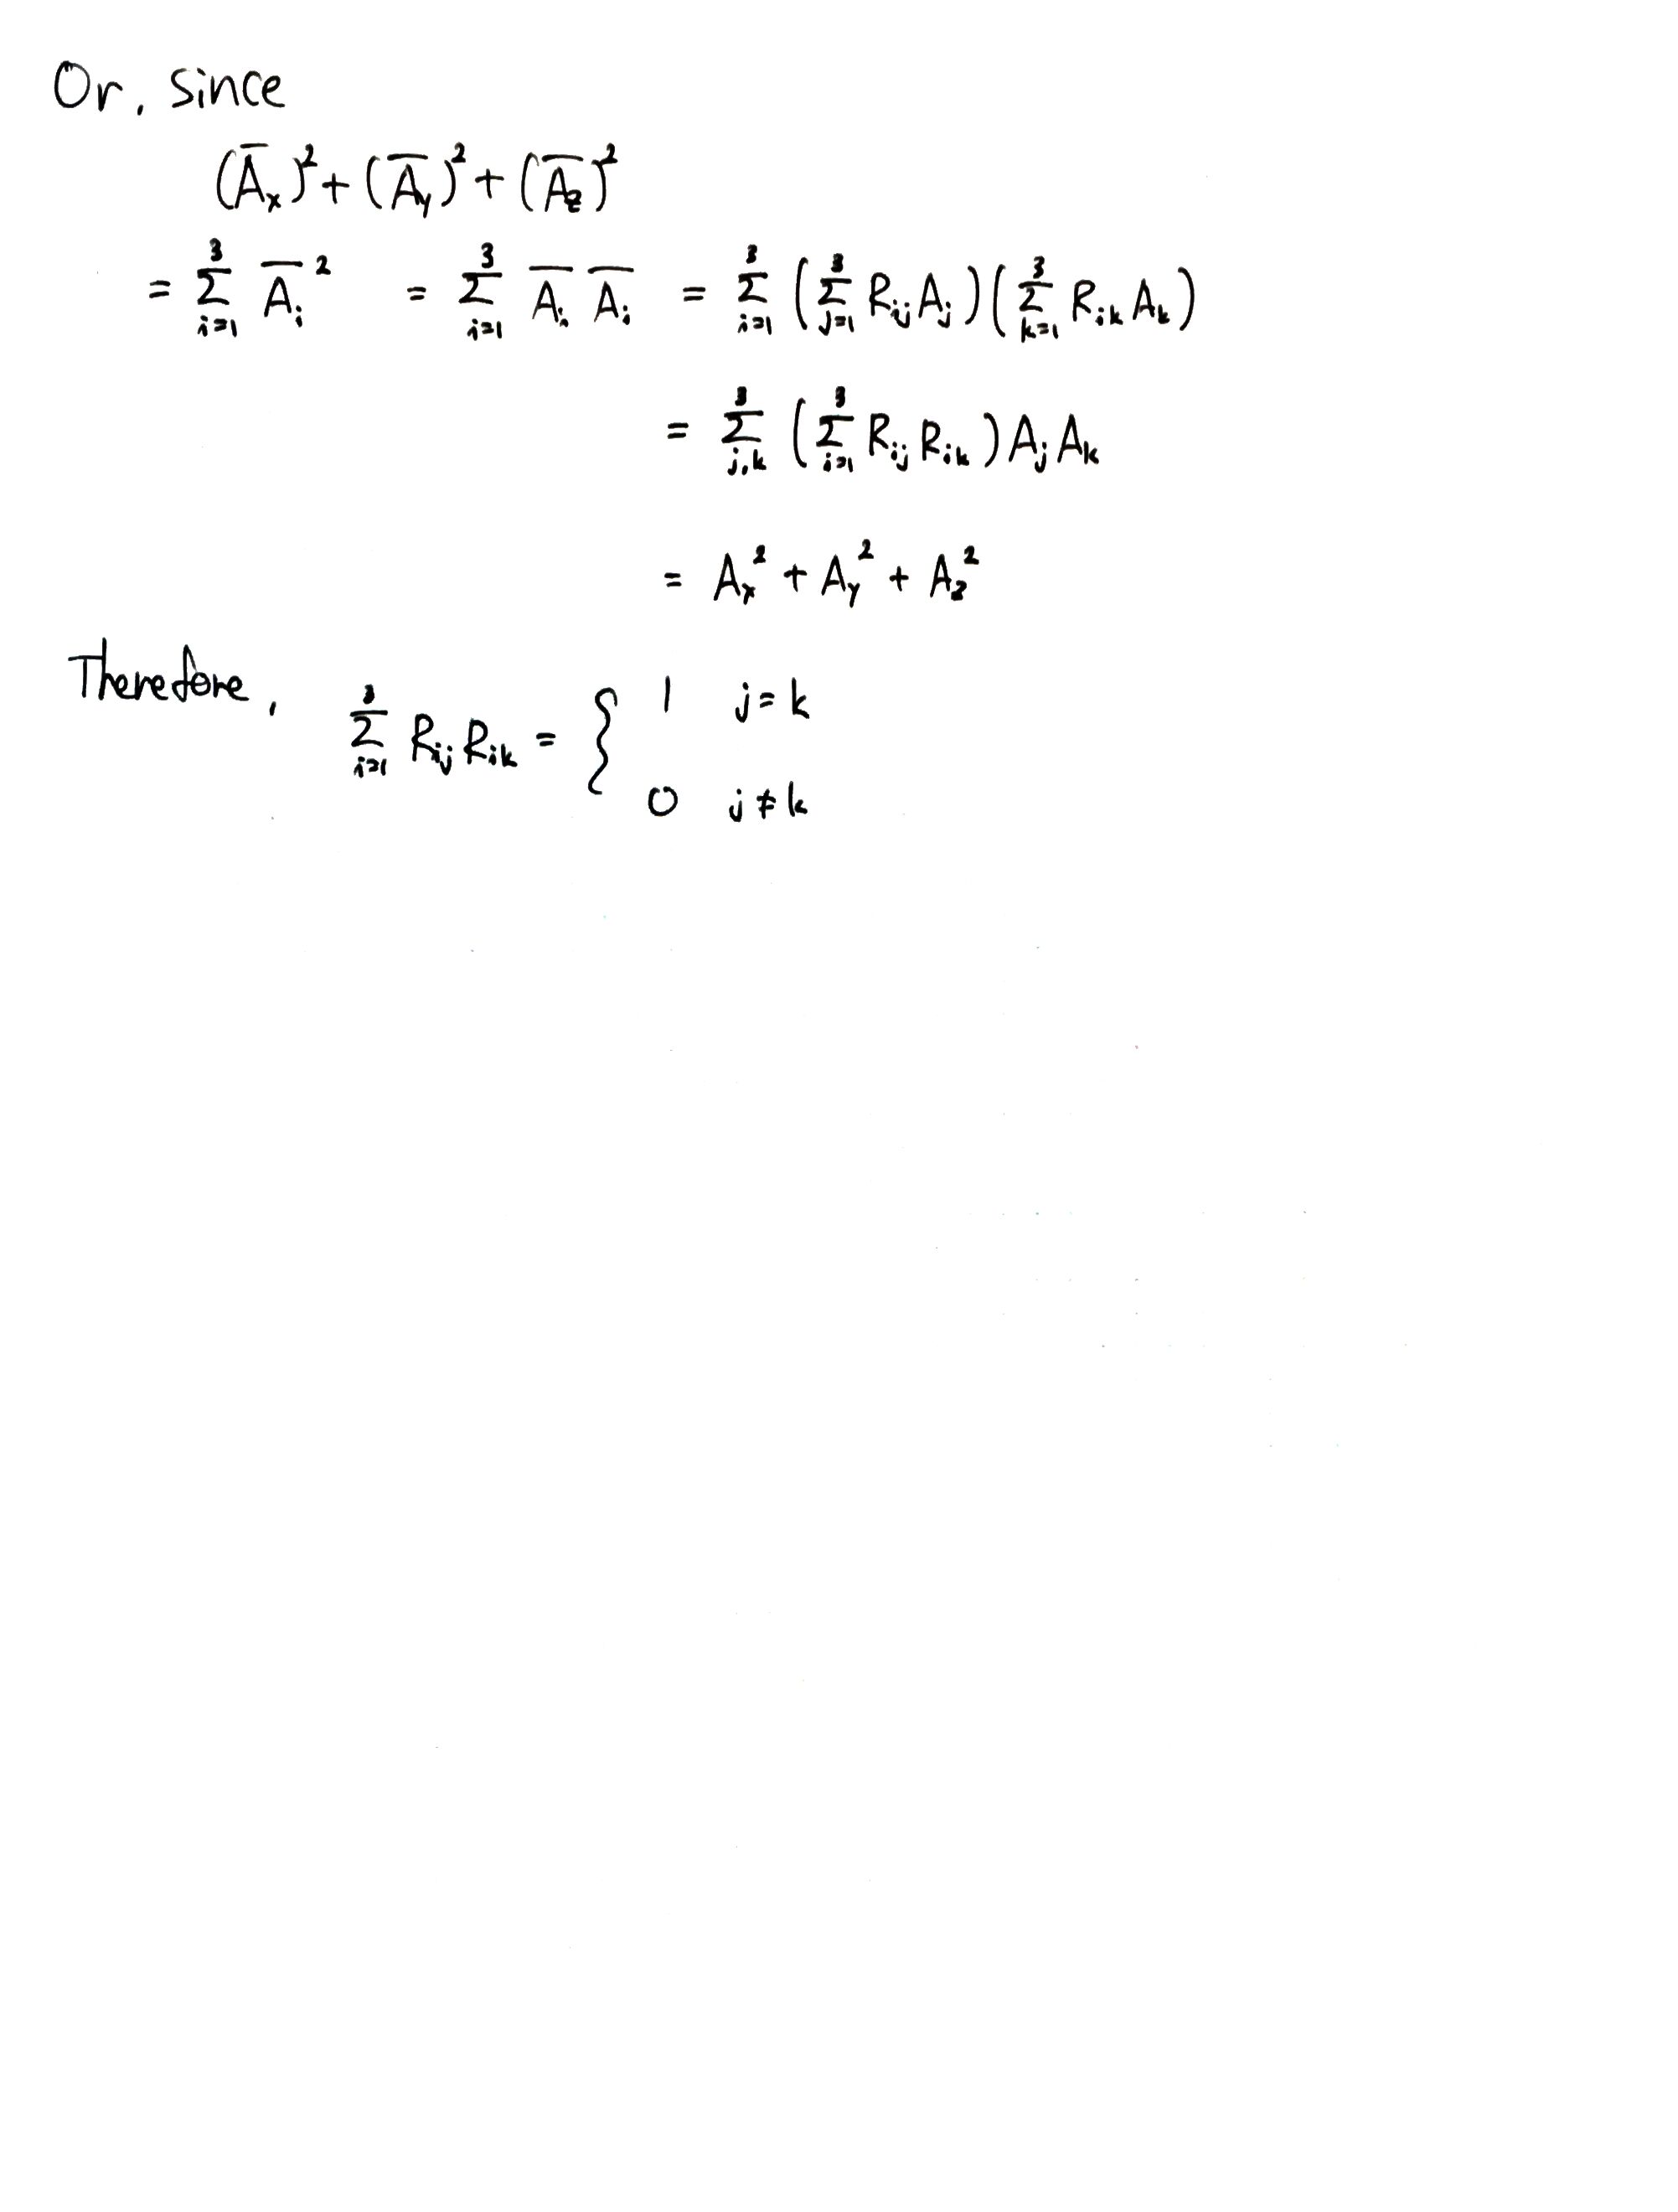 Or, since
(A̅ₓ)² + (A̅_y)² + (A̅_z)²
= Σ_{i=1}^{3} A̅_i² = Σ_{i=1}^{3} A̅_i A̅_i = Σ_{i=1}^{3} (Σ_{j=1}^{3} R_{ij} A_j)(Σ_{k=1}^{3} R_{ik} A_k)
= Σ_{j,k}^{3} (Σ_{i=1}^{3} R_{ij} R_{ik}) A_j A_k
= Aₓ² + A_y² + A_z²
Therefore, Σ_{i=1}^{3} R_{ij} R_{ik} = { 1 j=k
0 j≠k